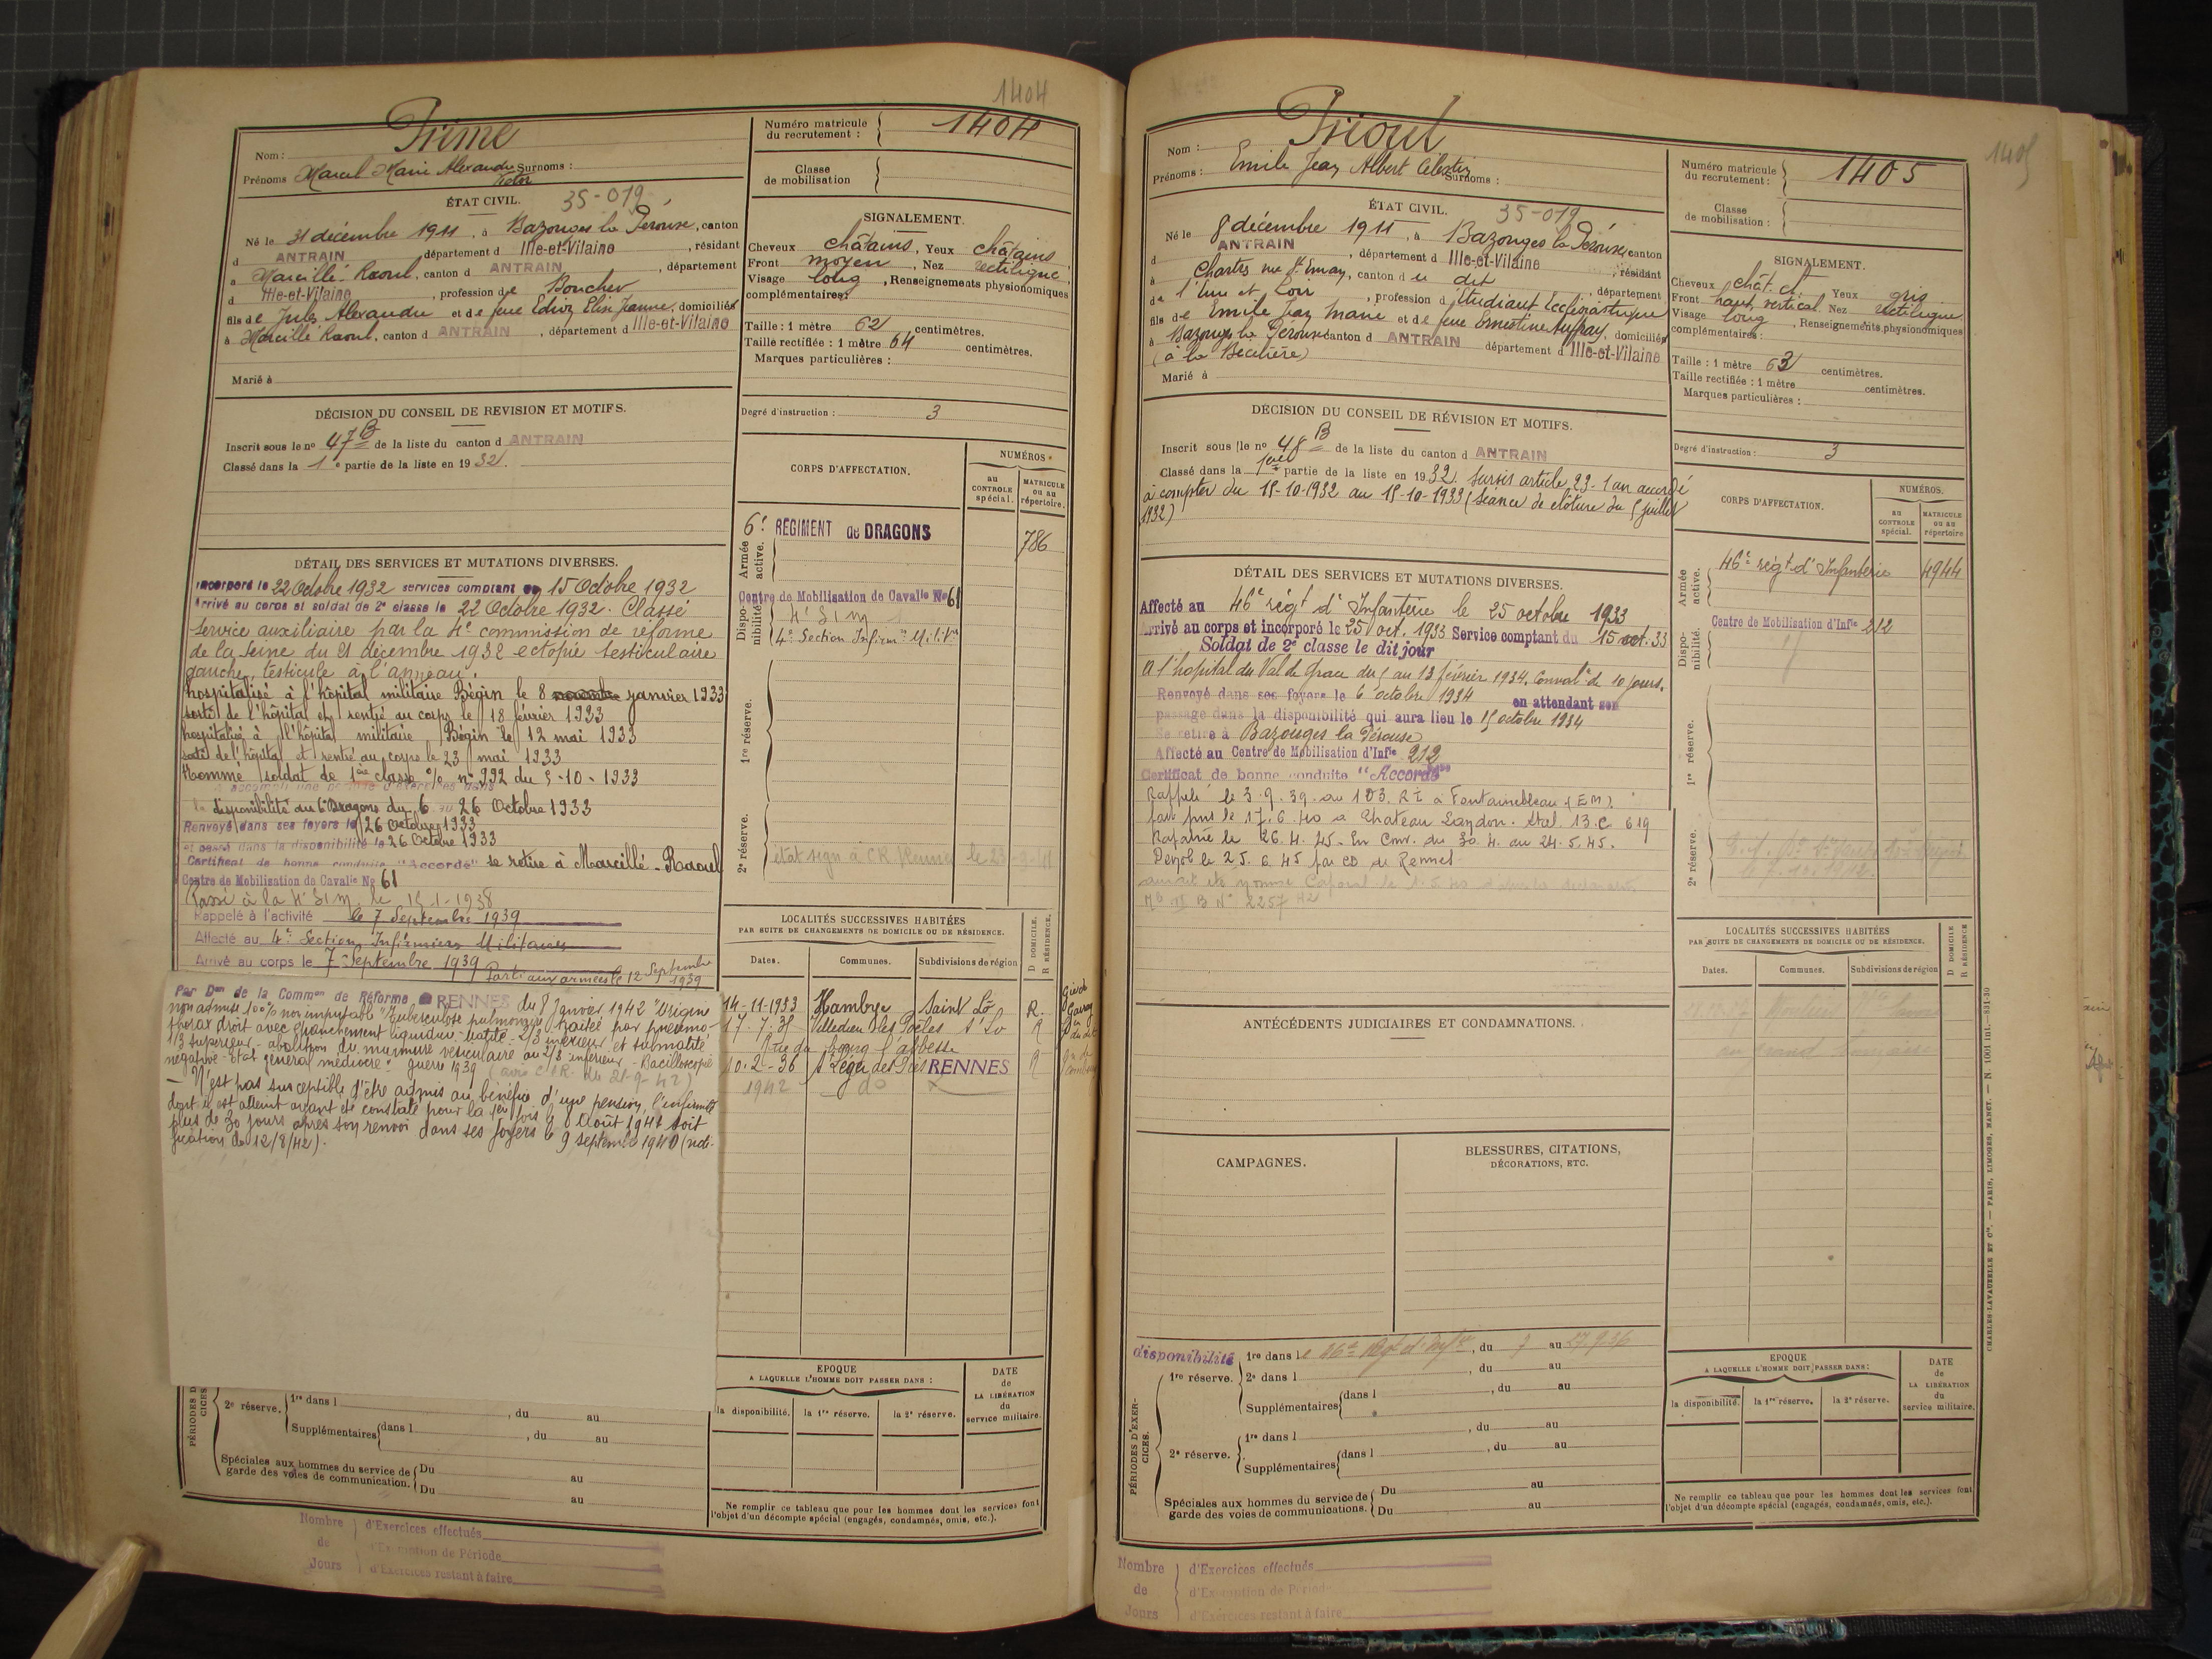 1404
Nom : Prime
Prénoms Marcel Marie Alexandre Surnoms :
Victor
ÉTAT CIVIL. 35-019
Né le 31 décembre 1911, à Bazouges la Pérouse, canton
d ANTRAIN, département d Ille-et-Vilaine, résidant
à Marcillé-Raoul, canton d ANTRAIN, département
d Ille-et-Vilaine, profession de Boucher
fils de Jules Alexandre et de feue Jeanne, domiciliés
à Marcillé Raoul, canton d ANTRAIN, département d Ille-et-Vilaine
Marié à
Numéro matricule
du recrutement : 1404
Classe
de mobilisation
SIGNALEMENT.
Cheveux châtains, Yeux châtains
Front moyen, Nez rectiligne
Visage long, Renseignements physionomiques
complémentaires:
Taille : 1 mètre 62 centimètres.
Taille rectifiée : 1 mètre 64 centimètres.
Marques particulières :
Degré d'instruction : 3
DÉCISION DU CONSEIL DE REVISION ET MOTIFS.
Inscrit sous le nº 47 B de la liste du canton d ANTRAIN
Classé dans la 1e partie de la liste en 1932.
CORPS D'AFFECTATION.
NUMÉROS
au CONTROLE spécial.
MATRICULE ou au répertoire.
Armée active.
6e REGIMENT de DRAGONS 786
Disponibilité
Centre de Mobilisation de Cavalie No 61
4e S I M
4e Section Infirmrs Militres
1re réserve.
2e réserve.
DÉTAIL DES SERVICES ET MUTATIONS DIVERSES.
Incorporé le 22 Octobre 1932 services comptant du 15 Octobre 1932
Arrivé au corps et soldat de 2e classe le 22 Octobre 1932. Classé
service auxiliaire par la 4e commission de réforme
de la Seine du 21 décembre 1932 ectopie testiculaire
gauche, testicule à l'anneau.
hospitalisé à l'hôpital militaire Bégin le 8 janvier 1933
sorti de l'hôpital et rentré au corps le 18 février 1933
hospitalisé à l'hôpital militaire Bégin le 12 mai 1933
sorti de l'hôpital et rentré au corps le 23 mai 1933
Nommé soldat de 1ère classe O/o nº 992 du 5-10-1933
A accompli une période d'exercices dans
la disponibilité au 6e Dragons du 6 au 26 Octobre 1933
Renvoyé dans ses foyers le 26 Octobre 1933
et passé dans la disponibilité le 26 Octobre 1933
Certificat de bonne conduite "Accordé" se retire à Marcillé-Raoul
Centre de Mobilisation de Cavalie No 61
Passé à la 4e S I M le 15-1-1938
Rappelé à l'activité le 7 Septembre 1939
Affecté au 4e Section Infirmiers Militaires
Arrivé au corps le 7 Septembre 1939 Parti aux armées le 12 Septembre
1939
Par Don de la Common de Réforme de RENNES du 8 Janvier 1942 "Origine
non admise 100% non imputable "Tuberculose pulmonaire traitée par pneumo-
thorax droit avec épanchement liquidien - matité 2/3 inférieur et submatité
1/3 supérieur - abolition du murmure vésiculaire au 2/3 inférieur - Bacilloscopie
négative - Etat général médiocre." guerre 1939 (avis C C R du 21-9-42)
- N'est pas susceptible d'être admis au bénéfice d'une pension, l'infirmité
dont il est atteint ayant été constatée pour la 1ère fois le 8 Août 1941 soit
plus de 30 jours après son renvoi dans ses foyers le 9 septembre 1940 (noti-
fication du 12/8/42).
LOCALITÉS SUCCESSIVES HABITÉES
PAR SUITE DE CHANGEMENTS DE DOMICILE OU DE RÉSIDENCE.
Dates. Communes. Subdivisions de région D DOMICILE. R RÉSIDENCE.
14-11-1933 Hambye Saint Lô R.
17.7.35 Villedieu les Poêles St Lo R
rue du bourg l'abbesse
10.2-36 St Léger des Prés RENNES R
1942 do
EPOQUE
A LAQUELLE L'HOMME DOIT PASSER DANS :
la disponibilité. la 1re réserve. la 2e réserve.
DATE
de
LA LIBÉRATION
du
service militaire.
Ne remplir ce tableau que pour les hommes dont les services font
l'objet d'un décompte spécial (engagés, condamnés, omis, etc.).
2e réserve. 1re dans l , du au
Supplémentaires dans l , du au
Spéciales aux hommes du service de Du au
garde des voies de communication. Du au
Nombre de Jours
d'Exercices effectués
d'Exemption de Période
d'Exercices restant à faire
1405
Nom : Prioul
Prénoms : Emile Jean Albert Célestin Surnoms :
ÉTAT CIVIL. 35-019
Né le 8 décembre 1911, à Bazouges la Pérouse, canton
d ANTRAIN, département d Ille-et-Vilaine, résidant
à Chartres rue St Eman, canton d u dit, département
de l'Eure et Loir, profession d'étudiant Ecclésiastique
fils de Emile Jean Marie et de feue Ernestine Auffray, domiciliés
à Bazouges la Pérouse canton d ANTRAIN département d Ille-et-Vilaine
Marié à
Numéro matricule
du recrutement : 1405
Classe
de mobilisation :
SIGNALEMENT.
Cheveux chât. cl. Yeux gris
Front haut vertical Nez rectiligne
Visage long, Renseignements physionomiques
complémentaires :
Taille : 1 mètre 63 centimètres.
Taille rectifiée : 1 mètre centimètres.
Marques particulières :
Degré d'instruction : 3
DÉCISION DU CONSEIL DE RÉVISION ET MOTIFS.
Inscrit sous le nº 48 B de la liste du canton d ANTRAIN
Classé dans la 1ère partie de la liste en 1932. Sursis article 23-1 an accordé
à compter du 15-10-1932 au 15-10-1933 (Séance de clôture du 5 juillet
1932)
CORPS D'AFFECTATION.
NUMÉROS.
au CONTROLE spécial.
MATRICULE ou au répertoire
Armée active.
46e régt d'Infanterie 4944
Disponibilité.
Centre de Mobilisation d'Infie 212
1re réserve.
2e réserve.
DÉTAIL DES SERVICES ET MUTATIONS DIVERSES.
Affecté au 46e régt d'Infanterie le 25 octobre 1933
Arrivé au corps et incorporé le 25 oct. 1933 Service comptant du 15 oct. 33
Soldat de 2e classe le dit jour
A l'hôpital du Val de Grace du 5 au 13 février 1934. Convalce de 10 jours.
Renvoyé dans ses foyers le 6 octobre 1934 en attendant son
passage dans la disponibilité qui aura lieu le 15 octobre 1934
Se retire à Bazouges la Pérouse
Affecté au Centre de Mobilisation d'Infie 212
Certificat de bonne conduite "Accordé"
Rappelé le 3.9.39. au 103. R I à Fontainebleau (EM).
fait pris le 17.6.40 à Chateau Landon. Stal. 13.C 619
Rapatrié le 26.4.45. En Conv. du 30.4. au 24.5.45.
Démob le 25.6.45 par CD de Rennes
LOCALITÉS SUCCESSIVES HABITÉES
PAR SUITE DE CHANGEMENTS DE DOMICILE OU DE RÉSIDENCE.
Dates. Communes. Subdivisions de région D DOMICILE R RÉSIDENCE
ANTÉCÉDENTS JUDICIAIRES ET CONDAMNATIONS.
CAMPAGNES.
BLESSURES, CITATIONS,
DÉCORATIONS, ETC.
PÉRIODES D'EXERCICES.
disponibilité 1re dans le 46e Régt d'Infie, du 7 au 27.9.36
1re réserve. 2e dans l , du au
Supplémentaires dans l , du au
, du au
2e réserve. 1re dans l , du au
Supplémentaires dans l , du au
Spéciales aux hommes du service de Du au
garde des voies de communications. Du au
EPOQUE
A LAQUELLE L'HOMME DOIT PASSER DANS :
la disponibilité. la 1re réserve. la 2e réserve.
DATE
de
LA LIBÉRATION
du
service militaire.
Ne remplir ce tableau que pour les hommes dont les services font
l'objet d'un décompte spécial (engagés, condamnés, omis, etc.).
Nombre de Jours
d'Exercices effectués
d'Exemption de Période
d'Exercices restant à faire
CHARLES-LAVAUZELLE ET Cie. — PARIS, LIMOGES, NANCY. — N. 1001 bis.—831-30